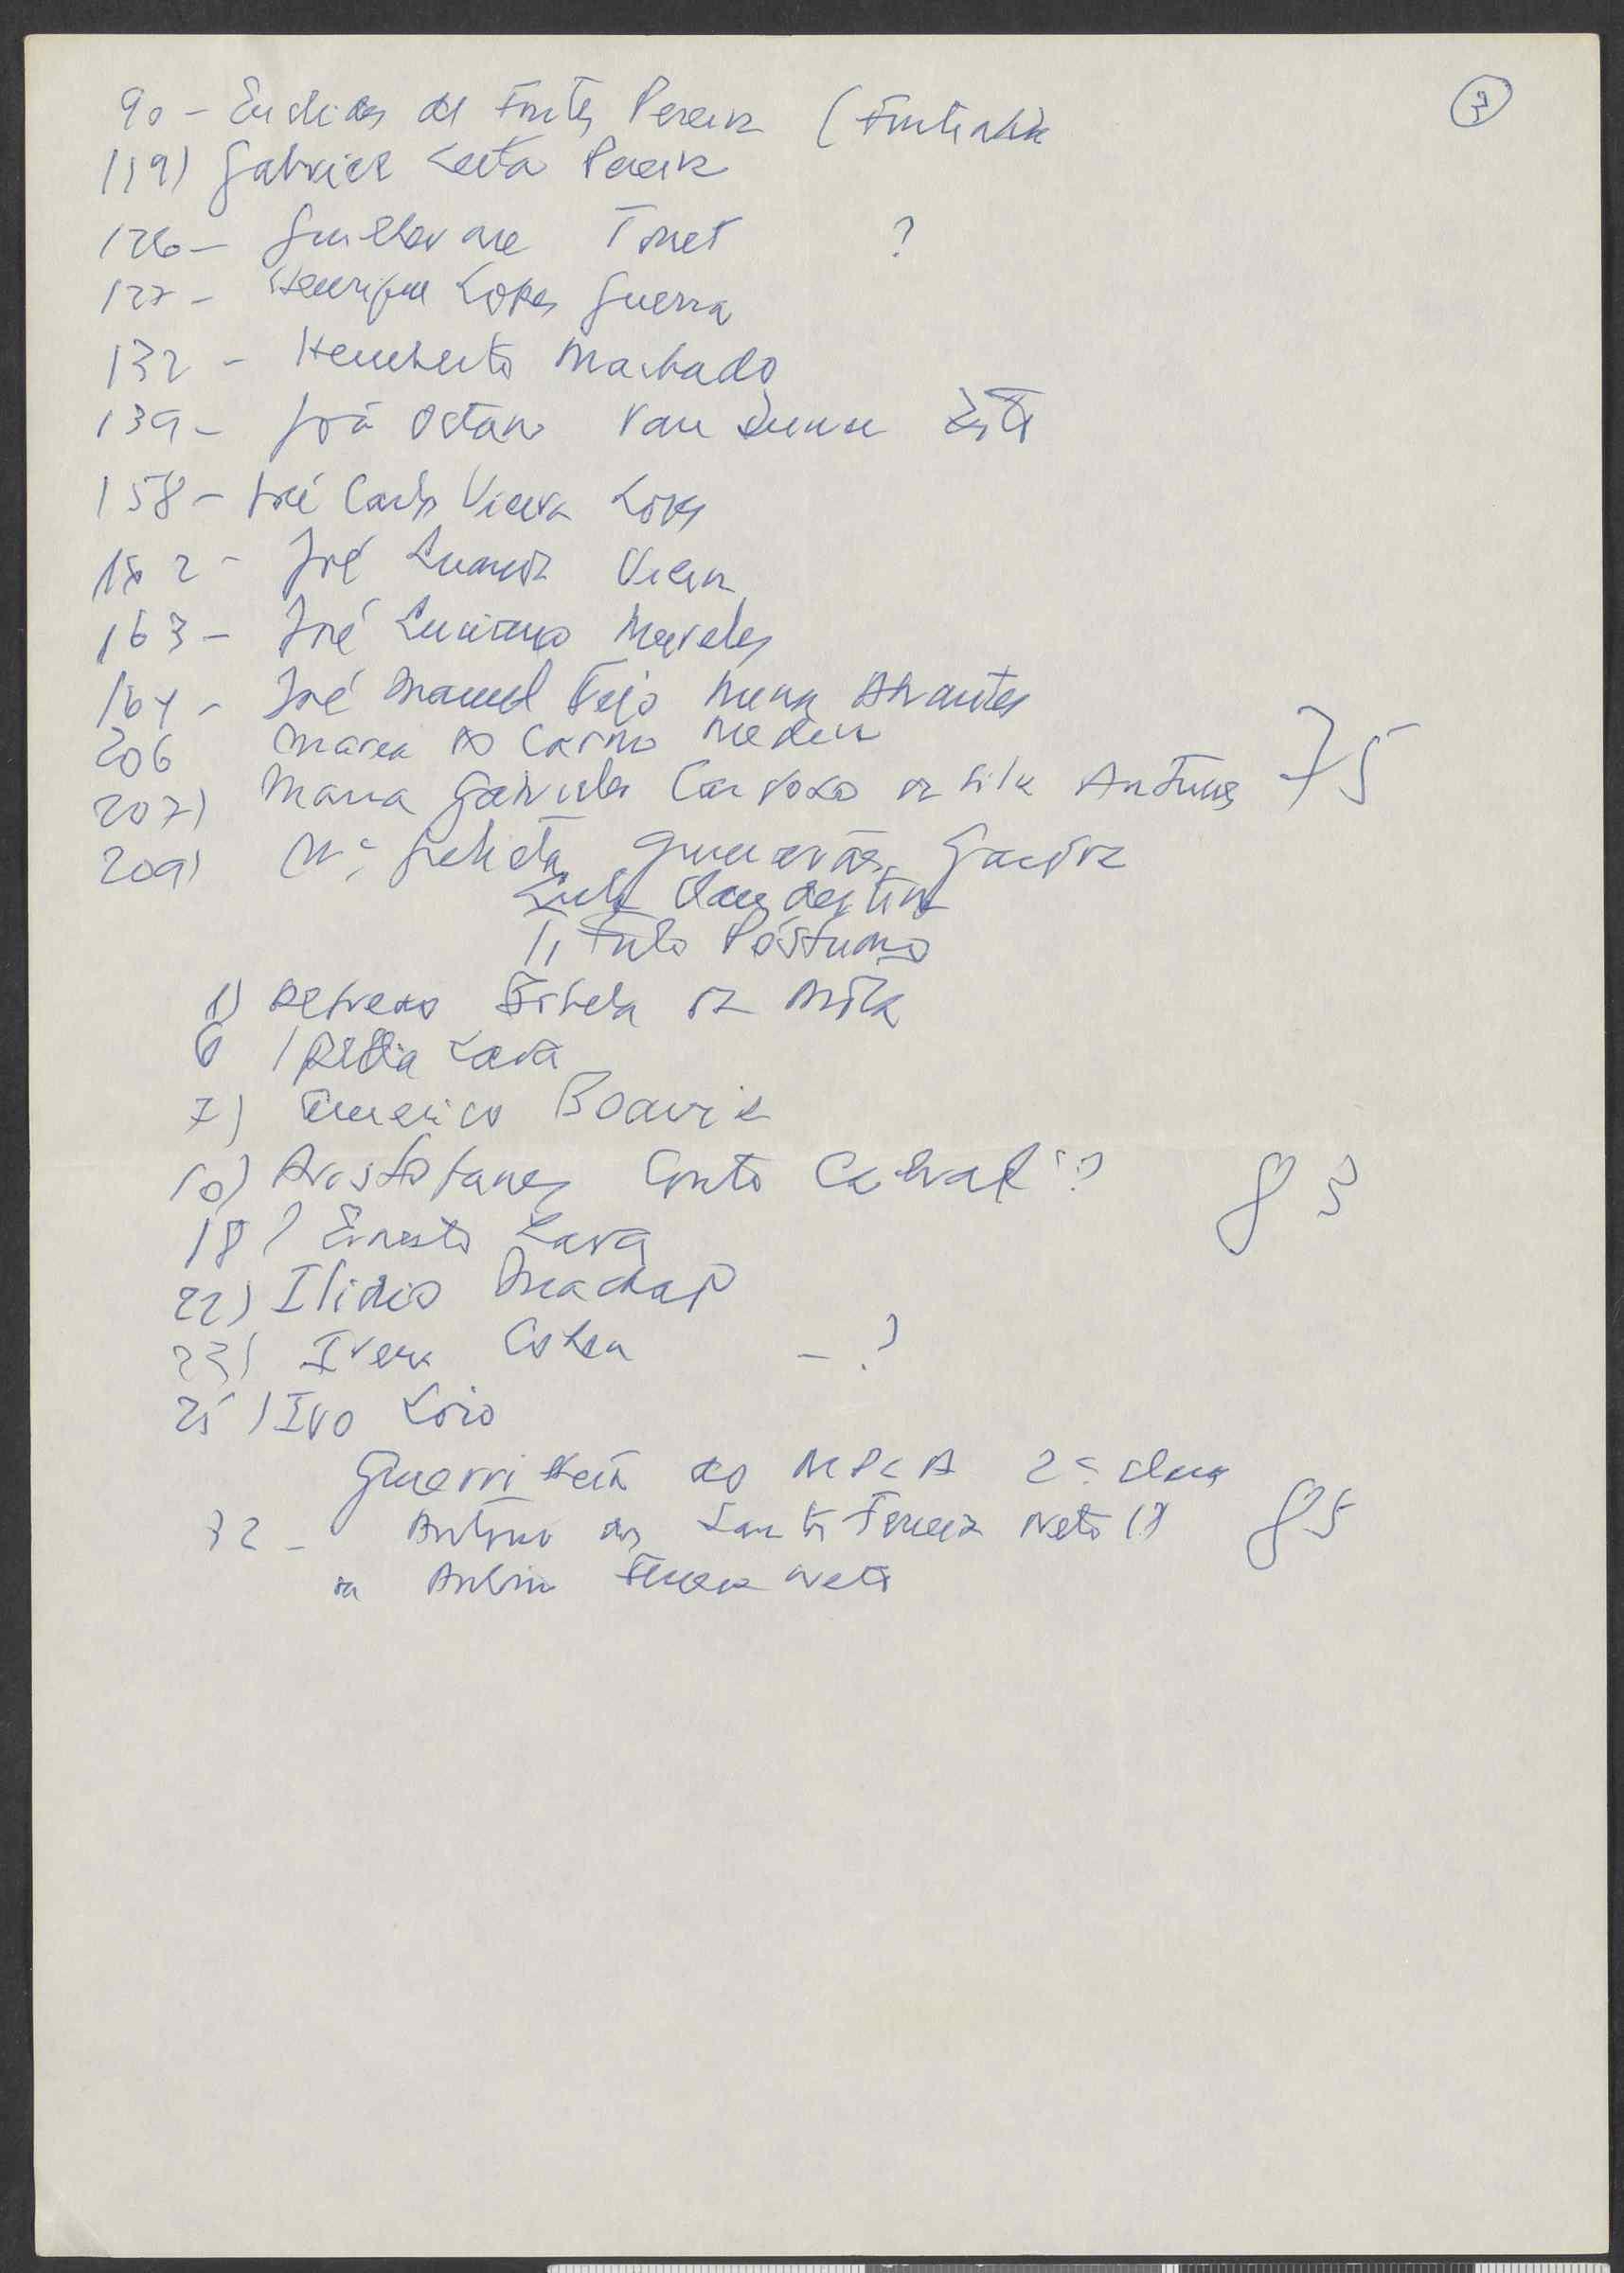 3
90 - Euclides de Fontes Pereira (Fontinha
119) Gabriel Leitão Pereira
126 - Guilherme Tonet ?
127 - Henrique Lopes Guerra
132 - Hemiberto Machado
139 - João Octavio Van Dunen
158 - José Carlos Vieira Lopes
162 - José Luandino Vieira
163 - José Luciano Meireles
164 - José Manuel Feijó Nunes Abrantes
206 Maria do Carmo Medina
207) Maria Gabriela Cardoso da Silva Antunes 75
209) Mª Julieta Guimarães Gandra
Luta Clandestina
Título Póstumo
1) Alfredo da
6) Lara
7) Americo Boavida
10) Aristofanes Couto Cabral ? 83
18) Ernesto Lara
22) Ilidio Machado
23) Cohen - ?
25) Ivo Loio
Guerrilheiro do MPLA 2ª classe
32 - Antonio dos Santos Ferreira Neto 85
Ferreira Neto